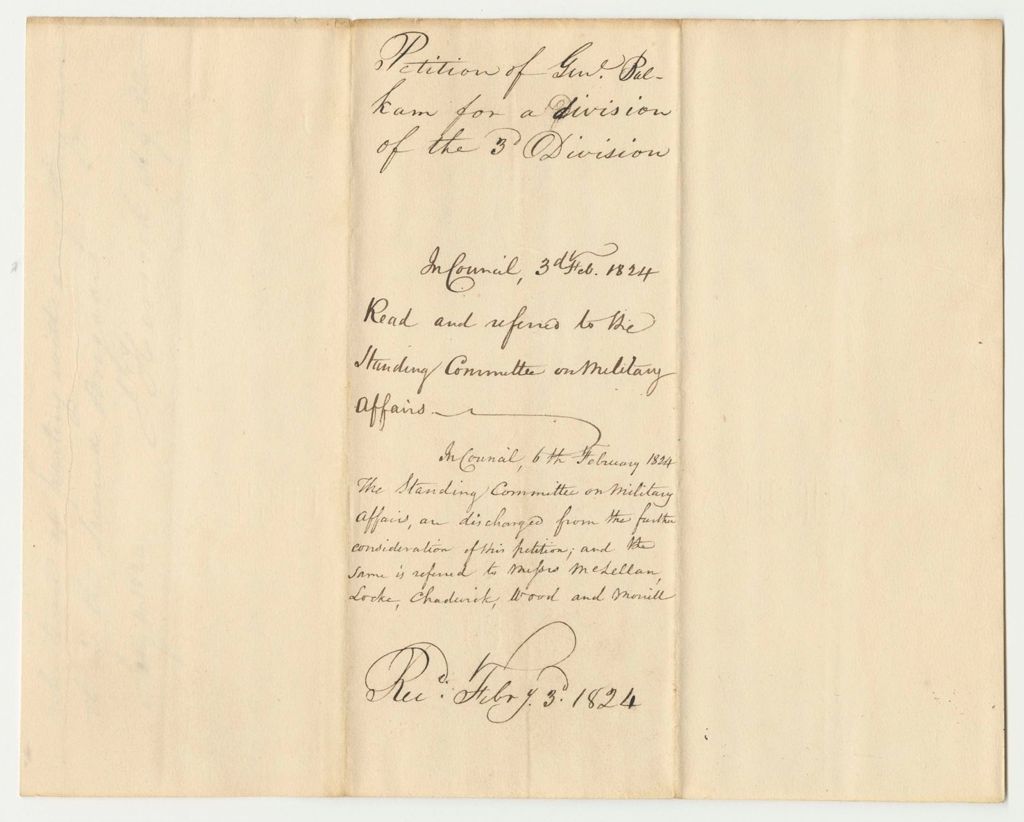 Petition of Genl. Bal-
kam for a division
of the 3d Division
In Council, 3d Feb. 1824
Read and referred to the
Standing Committee on Military
Affairs.
In Council, 6th February 1824
The Standing Committee on Military
Affairs, are discharged from the further
consideration of this petition; and the
same is referred to Messrs McLellan,
Locke, Chadwick, Wood and Morrill
Recd. Febry. 3d. 1824